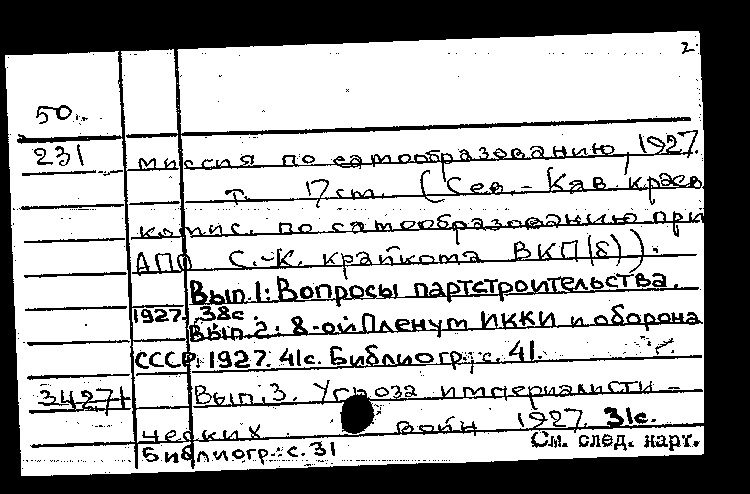 2
50.
231 миссия по самообразованию, 1927.
т. 17 см. (Сев.-Кав. краев
комис. по самообразованию при
АПО С.-К. крайкома ВКП(б)).
Вып.1: Вопросы партстроительства.
1927. 38с.
Вып.2: 8-ой Пленум ИККИ и оборона
СССР. 1927. 41с. Библиогр.: с. 41.
34271 Вып.3. Угроза империалисти-
ческих войн 1927. 31с.
Библиогр.: с. 31
См. след. карт.